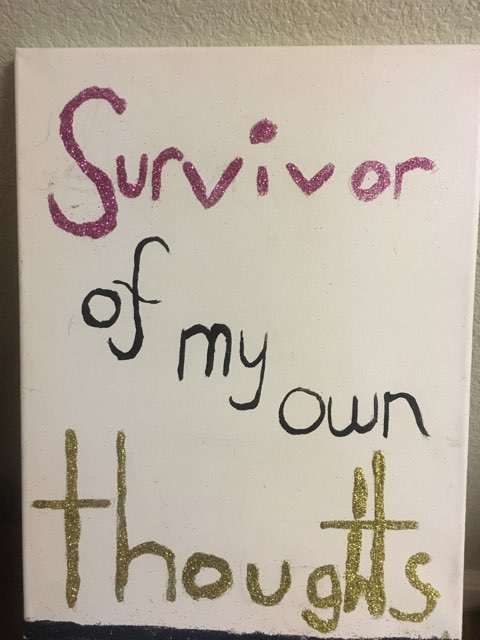 Survivor
of my own
thoughts